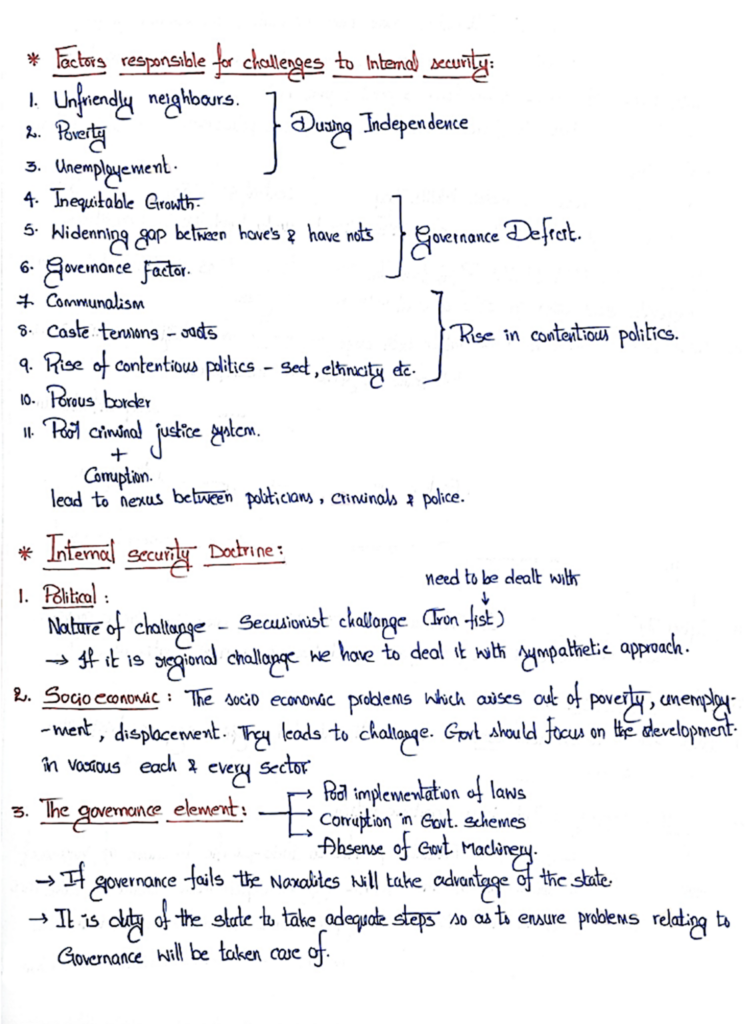 * Factors responsible for challenges to Internal security:
1. Unfriendly neighbours.
2. Poverty
During Independence
3. Unemployement.
4. Inequitable Growth.
5. Widenning gap between have's & have nots
Governance Deficit.
6. Governance Factor.
7. Communalism
8. Caste tensions -
Rise in contentious politics.
9. Rise of contentious politics - sect, ethnicity etc.
10. Porous border
11. Poor criminal justice system.
+
Corruption.
lead to nexus between politicians, criminals & police.
* Internal security Doctrine:
need to be dealt with
↓
1. Political :
Nature of challange - Secusionist challange (Iron fist)
→ If it is regional challange we have to deal it with sympathetic approach.
2. Socio economic : The socio economic problems which arises out of poverty, unemploy-
-ment, displacement. They leads to challange. Govt should focus on the development.
in various each & every sector
3. The governance element: → Poor implementation of laws
→ Corruption in Govt. schemes
→ Absense of Govt Machinery.
→ If governance fails the Naxalites will take advantage of the state.
→ It is duty of the state to take adequate steps so as to ensure problems relating to
Governance will be taken care of.